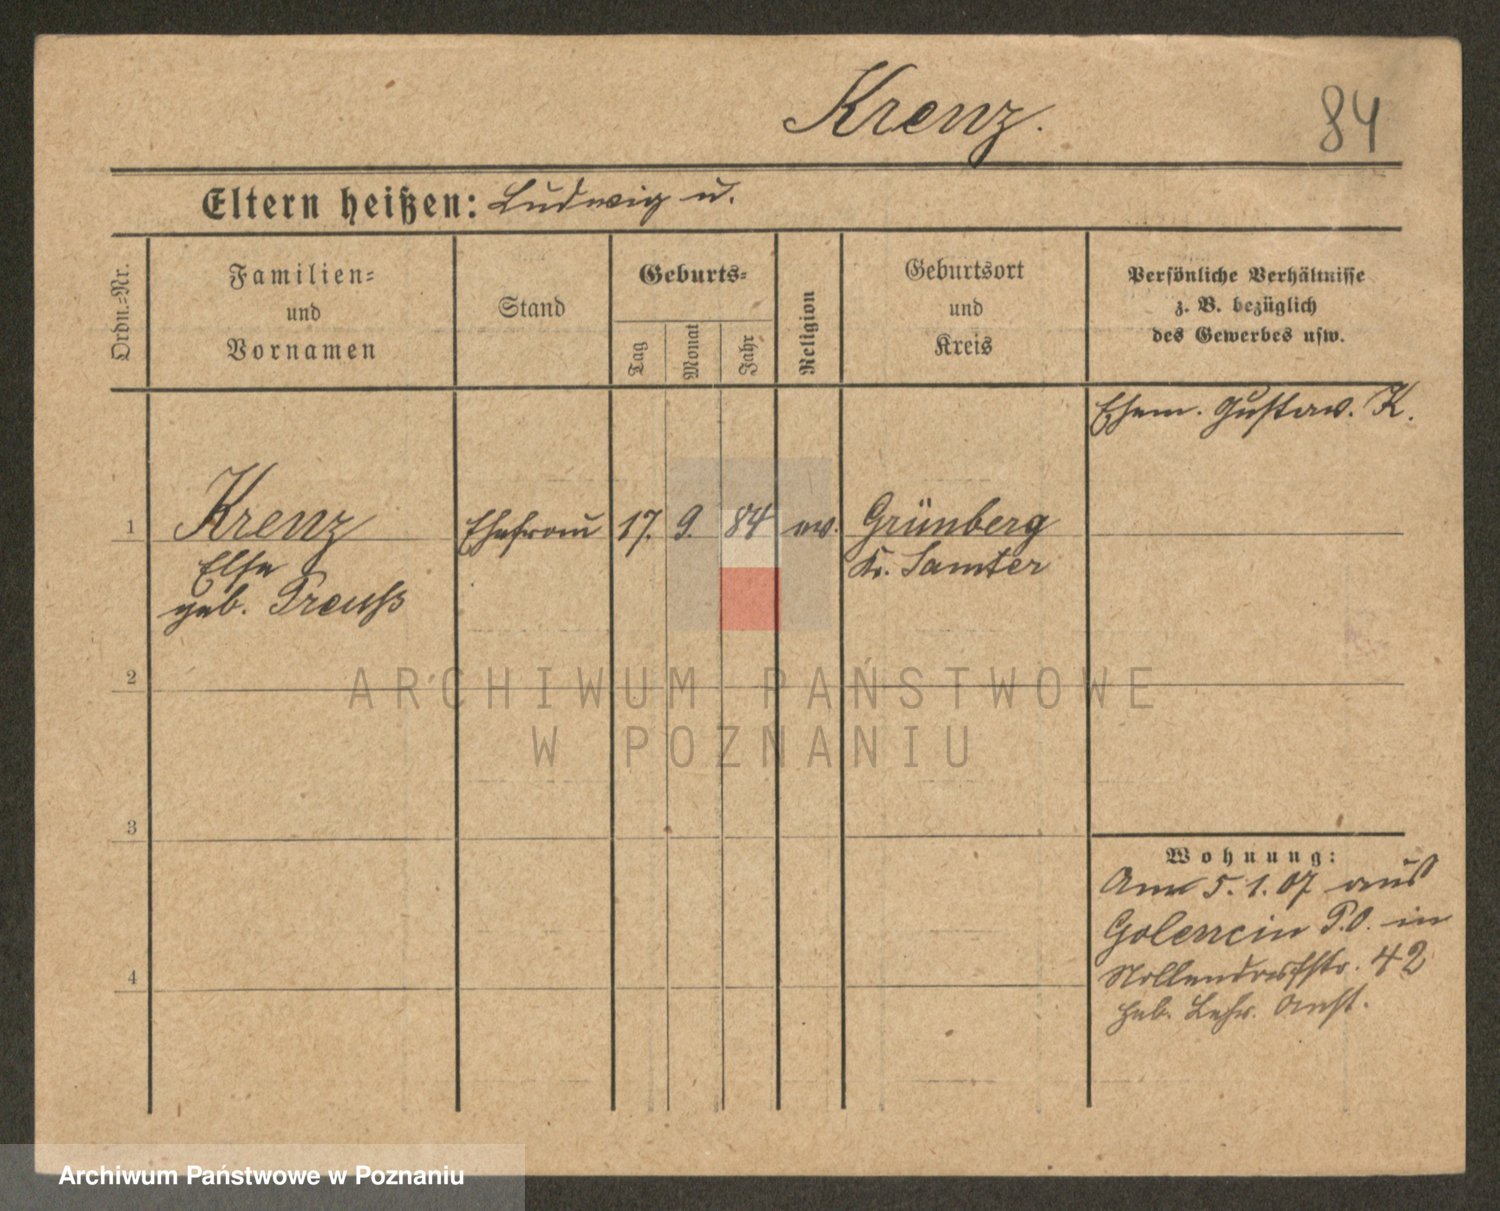 Krenz.
84
Eltern heißen: Ludwig u.
Ordn.-Nr.
Familien-
und
Vornamen
Stand
Geburts-
Tag
Monat
Jahr
Religion
Geburtsort
und
Kreis
Persönliche Verhältnisse
z. B. bezüglich
des Gewerbes usw.
Ehem. Gustav. K.
1
Krenz
Else
geb. Preuß
Ehefrau
17.
9.
84
ev.
Grünberg
Kr. Samter
2
ARCHIWUM PAŃSTWOWE
W POZNANIU
3
Wohnung:
Am 5.1.07 aus
Golencin P.O. in
Nollendorfstr. 42
Heb. Lehr. Anst.
4
Archiwum Państwowe w Poznaniu